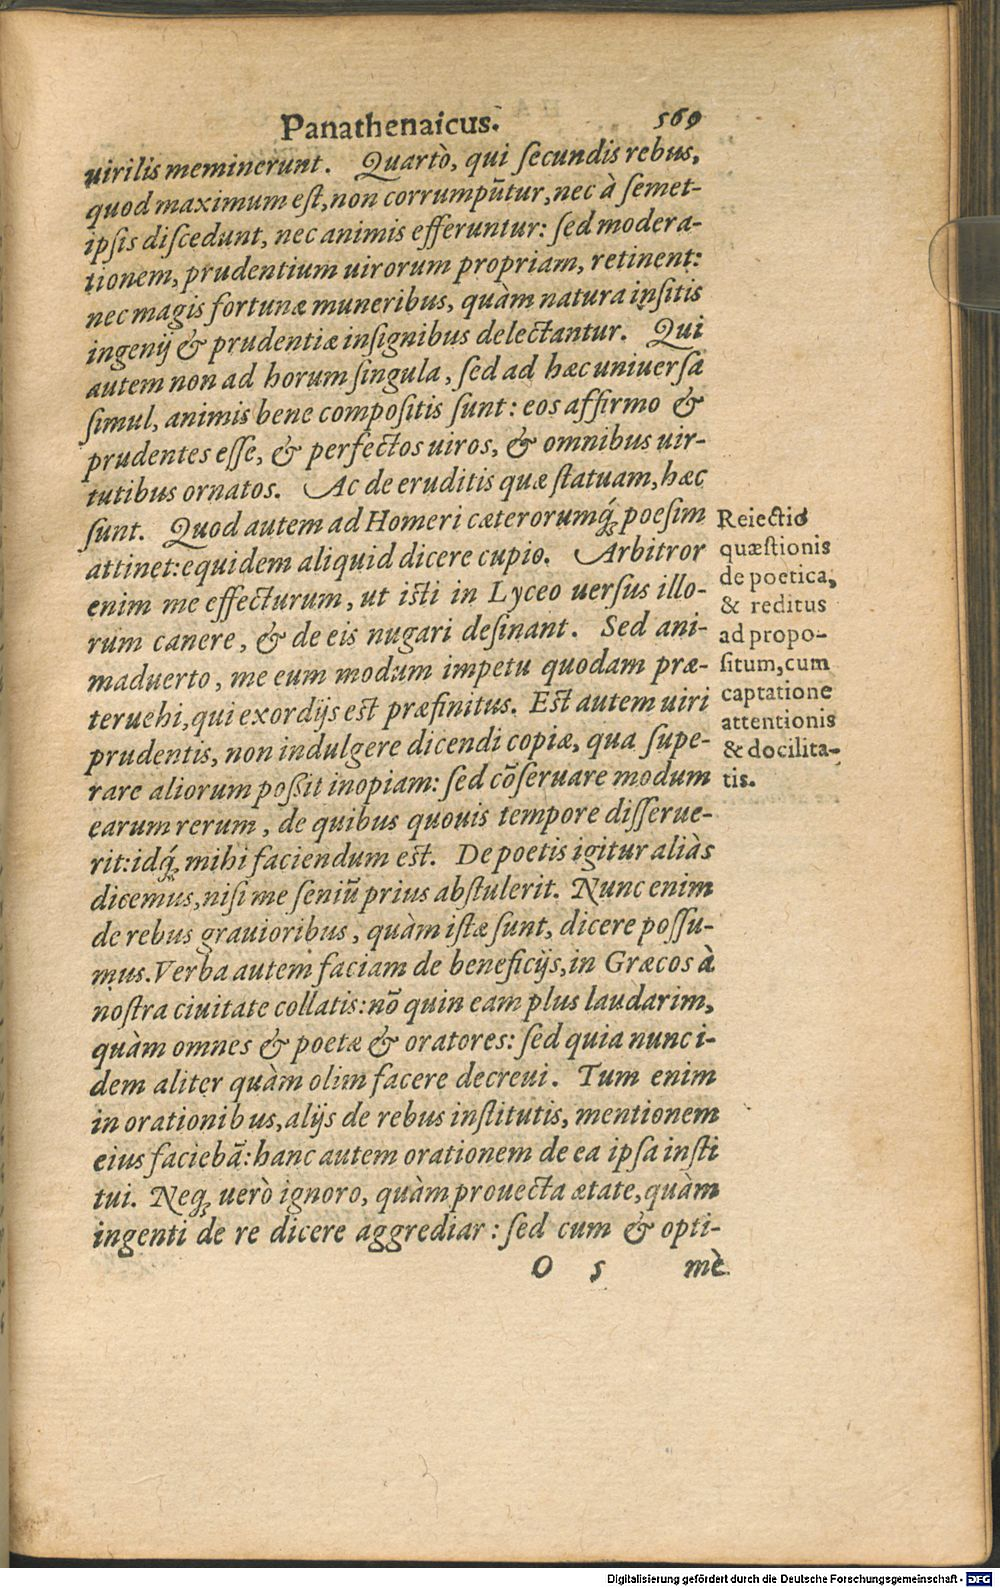 Panathenaicus. 569
uirilis meminerunt. Quartò, qui ſecundis rebus,
quod maximum eſt, non corrumpūtur, nec à ſemet-
ipſis diſcedunt, nec animis efferuntur: ſed modera-
tionem, prudentium uirorum propriam, retinent:
nec magis fortunæ muneribus, quàm natura inſitis
ingenij & prudentiæ inſignibus delectantur. Qui
autem non ad horum ſingula, ſed ad hæc uniuerſa
ſimul, animis bene compoſitis ſunt: eos affirmo &
prudentes eſſe, & perfectos uiros, & omnibus uir-
tutibus ornatos. Ac de eruditis quæ ſtatuam, hæc
ſunt. Quod autem ad Homeri cæterorumq́; poeſim
attinet: equidem aliquid dicere cupio. Arbitror
enim me effecturum, ut iſti in Lyceo uerſus illo-
rum canere, & de eis nugari deſinant. Sed ani-
maduerto, me eum modum impetu quodam præ-
teruehi, qui exordijs eſt præfinitus. Eſt autem uiri
prudentis, non indulgere dicendi copiæ, qua ſupe-
rare aliorum poſſit inopiam: ſed cōſeruare modum
earum rerum, de quibus quouis tempore diſſerue-
rit: idq́; mihi faciendum eſt. De poetis igitur aliàs
dicemus, niſi me ſeniū prius abſtulerit. Nunc enim
de rebus grauioribus, quàm iſtæ ſunt, dicere poſſu-
mus. Verba autem faciam de beneficijs, in Græcos à
noſtra ciuitate collatis: nō quin eam plus laudarim,
quàm omnes & poetæ & oratores: ſed quia nunc i-
dem aliter quàm olim facere decreui. Tum enim
in orationibus, alijs de rebus inſtitutis, mentionem
eius faciebā: hanc autem orationem de ea ipſa inſti
tui. Neq; uerò ignoro, quàm prouecta ætate, quàm
ingenti de re dicere aggrediar: ſed cum & opti-
O 5 mè
Reiectio
quæſtionis
de poetica,
& reditus
ad propo-
ſitum, cum
captatione
attentionis
& docilita-
tis.
Digitalisierung gefördert durch die Deutsche Forschungsgemeinschaft - DFG